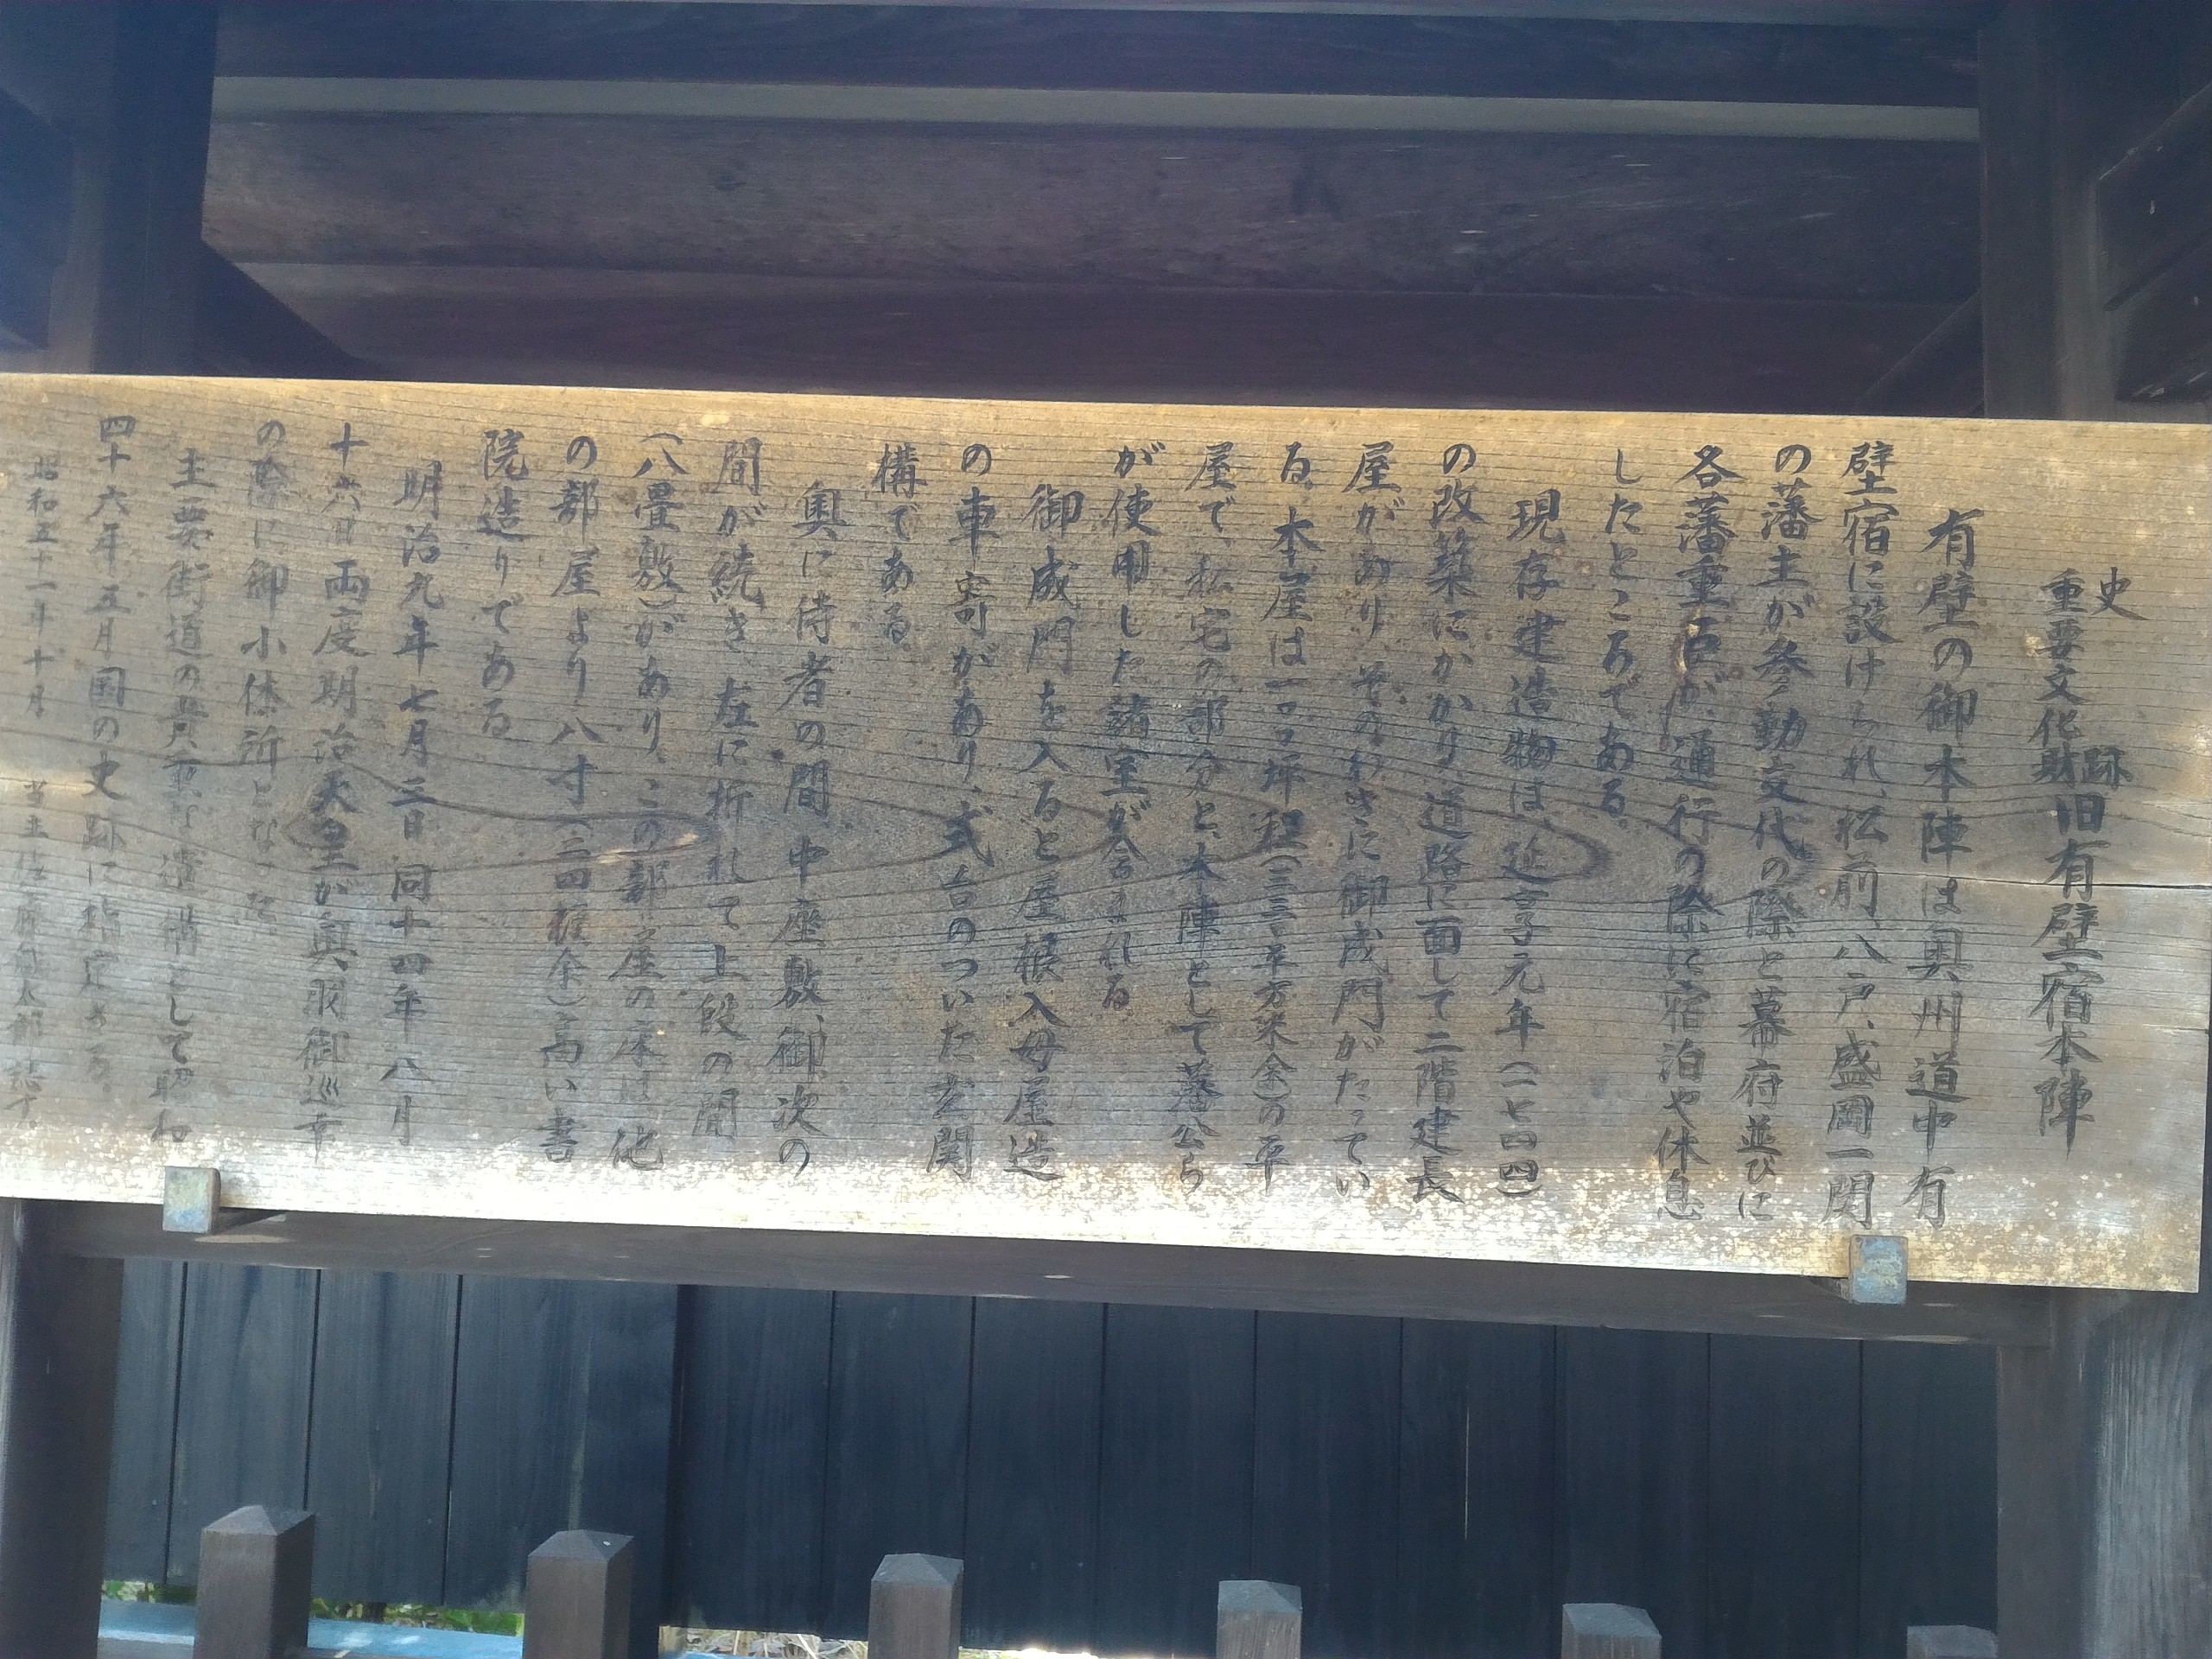 史跡
重要文化財
旧有壁宿本陣
有壁の御本陣は奥州道中有
壁宿に設けられ、松前、八戸、盛岡、一関
の藩主が参勤交代の際と幕府並びに
各藩重臣が、通行の際に宿泊や休息
したところである。
現存建造物は、延享元年(一七四四)
の改築にかかり、道路に面して二階建長
屋があり、そのわきに御成門がたってい
る。本屋は一〇〇坪程(三三〇平方米余)の平
屋で、私宅の部分と、本陣として藩公ら
が使用した諸室が含まれる。
御成門を入ると屋根入母屋造
の車寄があり、式台のついた玄関
構である。
奥に侍者の間、中座敷、御次の
間が続き、左に折れて上段の間
(八畳敷)があり、この部屋の床は他
の部屋より八寸(二四糎余)高い書
院造りである
明治九年七月三日、同十四年八月
十六日両度明治天皇が奥羽御巡幸
の際に御小休所となった。
主要街道の貴重な遺構として昭和
四十六年五月国の史跡に指定さる。
昭和五十一年十月 当主 太郎 誌す。